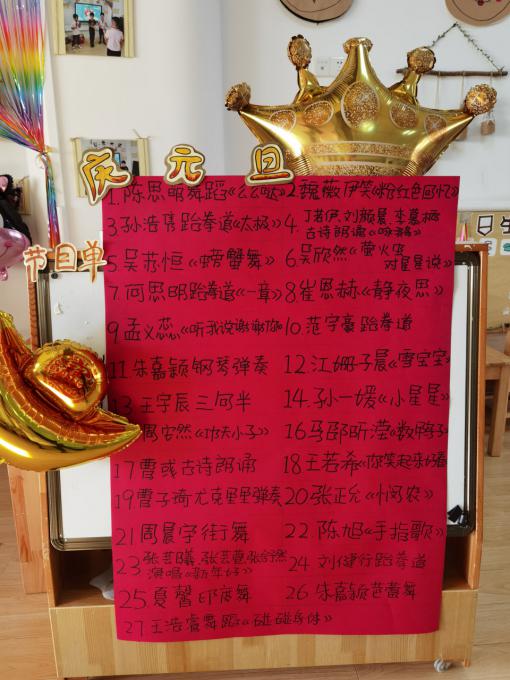 庆元旦
节目单
1.陈思明舞蹈《么么哒》 2.魏薇伊笑《粉红色回忆》
3.孙浩隽跆拳道《太极》 4.丁若伊、刘颜晨、李蔓
古诗朗诵《咏鹅》
5.吴苏恒《螃蟹舞》 6.吴欣然《萤火虫
对星星说》
7.何思明跆拳道《一章》 8.崔恩赫《静夜思》
9.孟义蕊《听我说谢谢你》 10.范宇豪跆拳道
11.朱嘉颖钢琴弹奏 12.江姗子晨《雪宝宝》
13.王宇辰三句半 14.孙一媛《小星星》
周安然《功夫小子》 16.马邵昕滢《数鸭子》
17曹彧古诗朗诵 18.王若希《你笑起来好看
19.曹子琦尤克里里弹奏 20.张正允《悯农》
21周晨宇街舞 22.陈旭《手指歌》
23.张芸曦、张芸
演唱《新年好》 24.刘健行跆拳道
25.夏馨印度舞 26.朱嘉颖芭蕾舞
27.王浩睿舞蹈《碰碰身体》